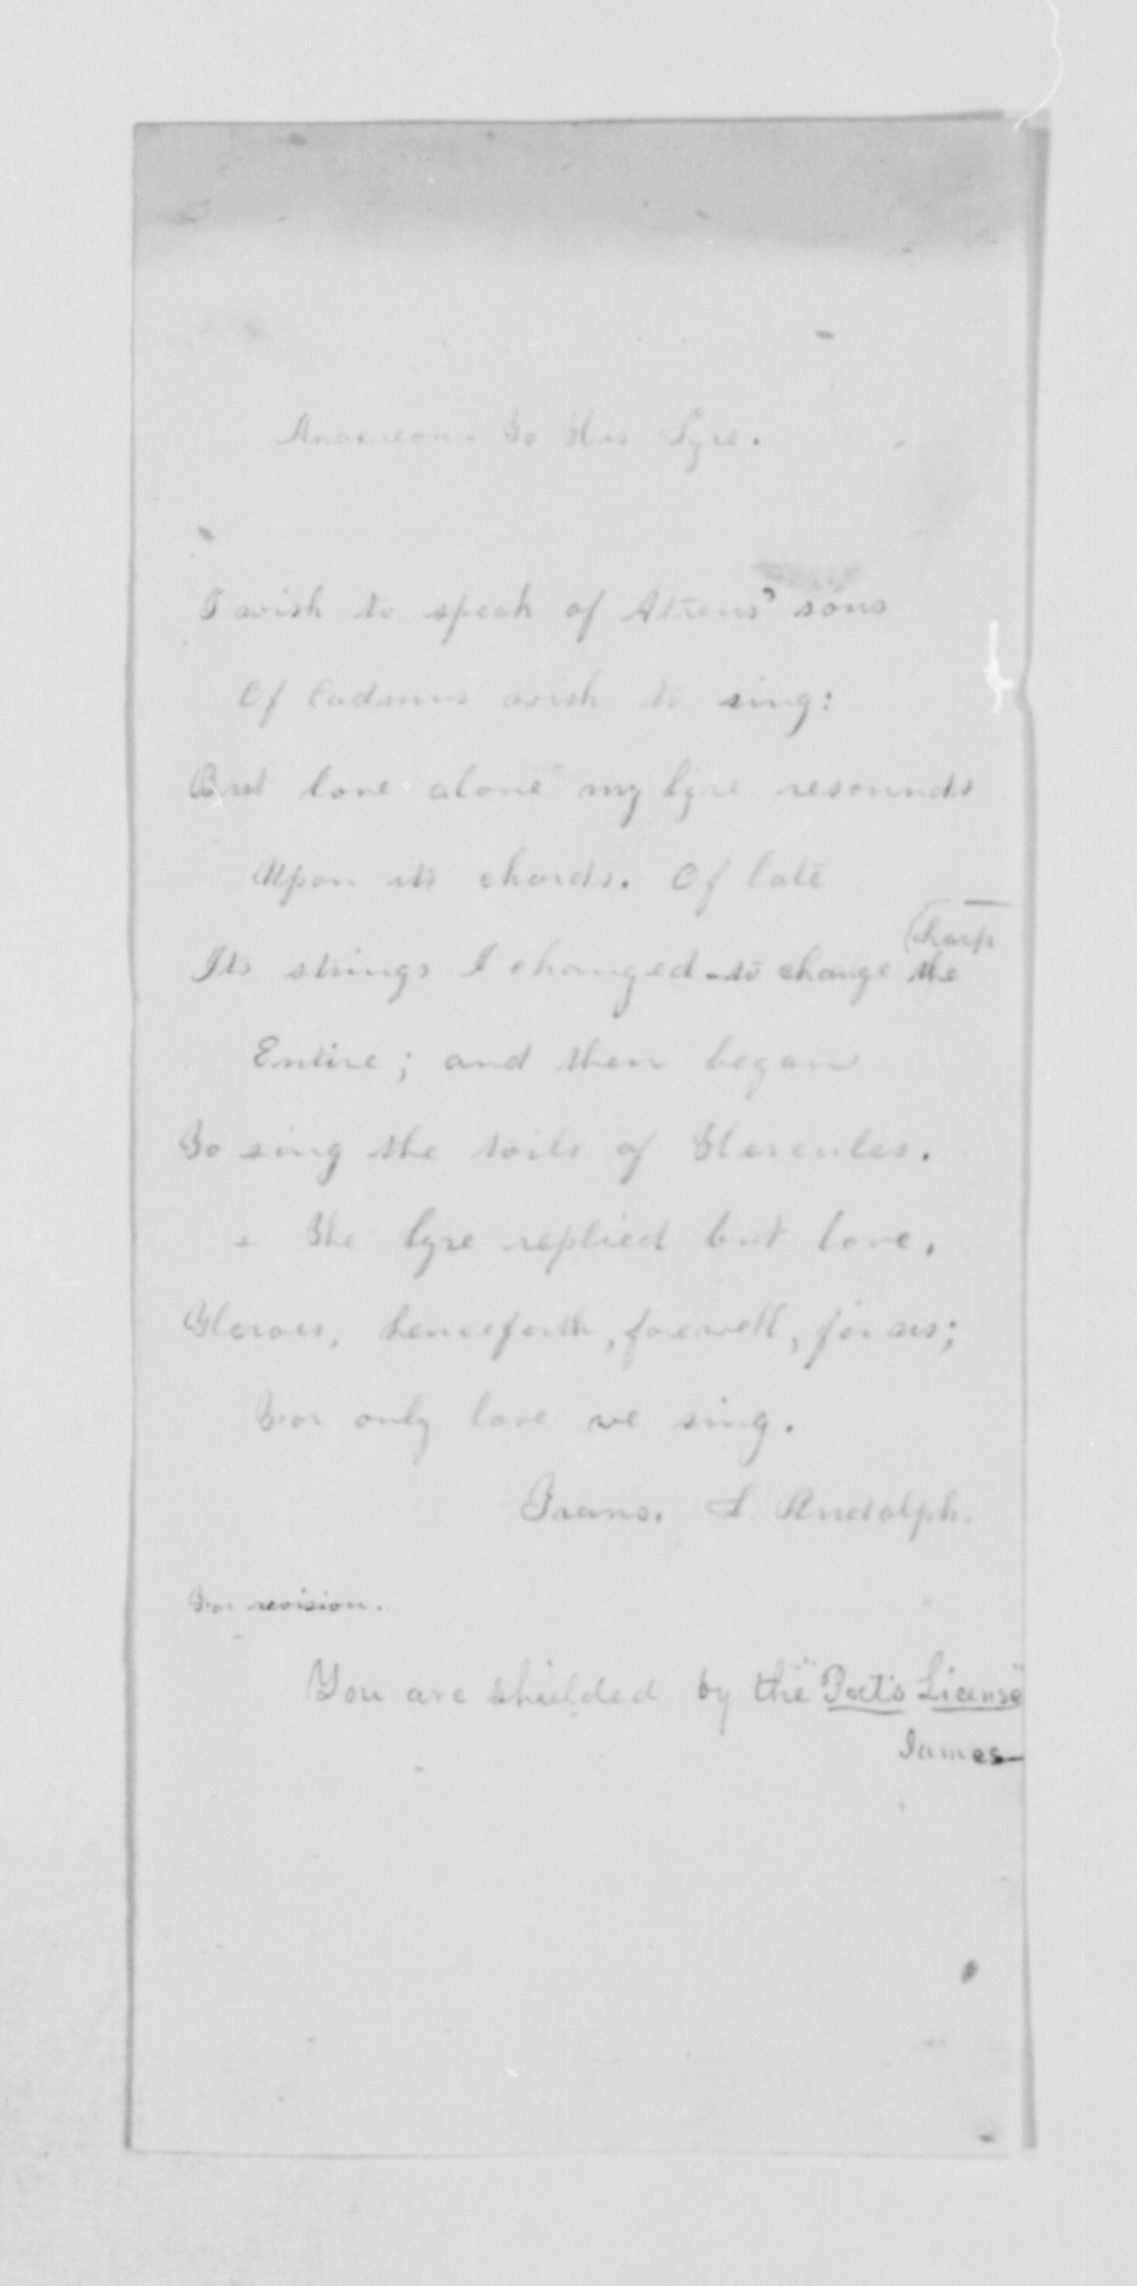 Anacreon - To His Lyre.
I wish to speak of Atreus' sons
Of Cadmus wish to sing:
But love alone my lyre resounds
Upon its chords. Of late
(harp
Its strings I changed - to change the
Entire; and then began
To sing the toils of Hercules.
The lyre replied but love.
Heroes, henceforth, farewell, for us;
For only love we sing.
Trans. L. Rudolph.
For revision.
You are shielded by the "Poet's License"
James